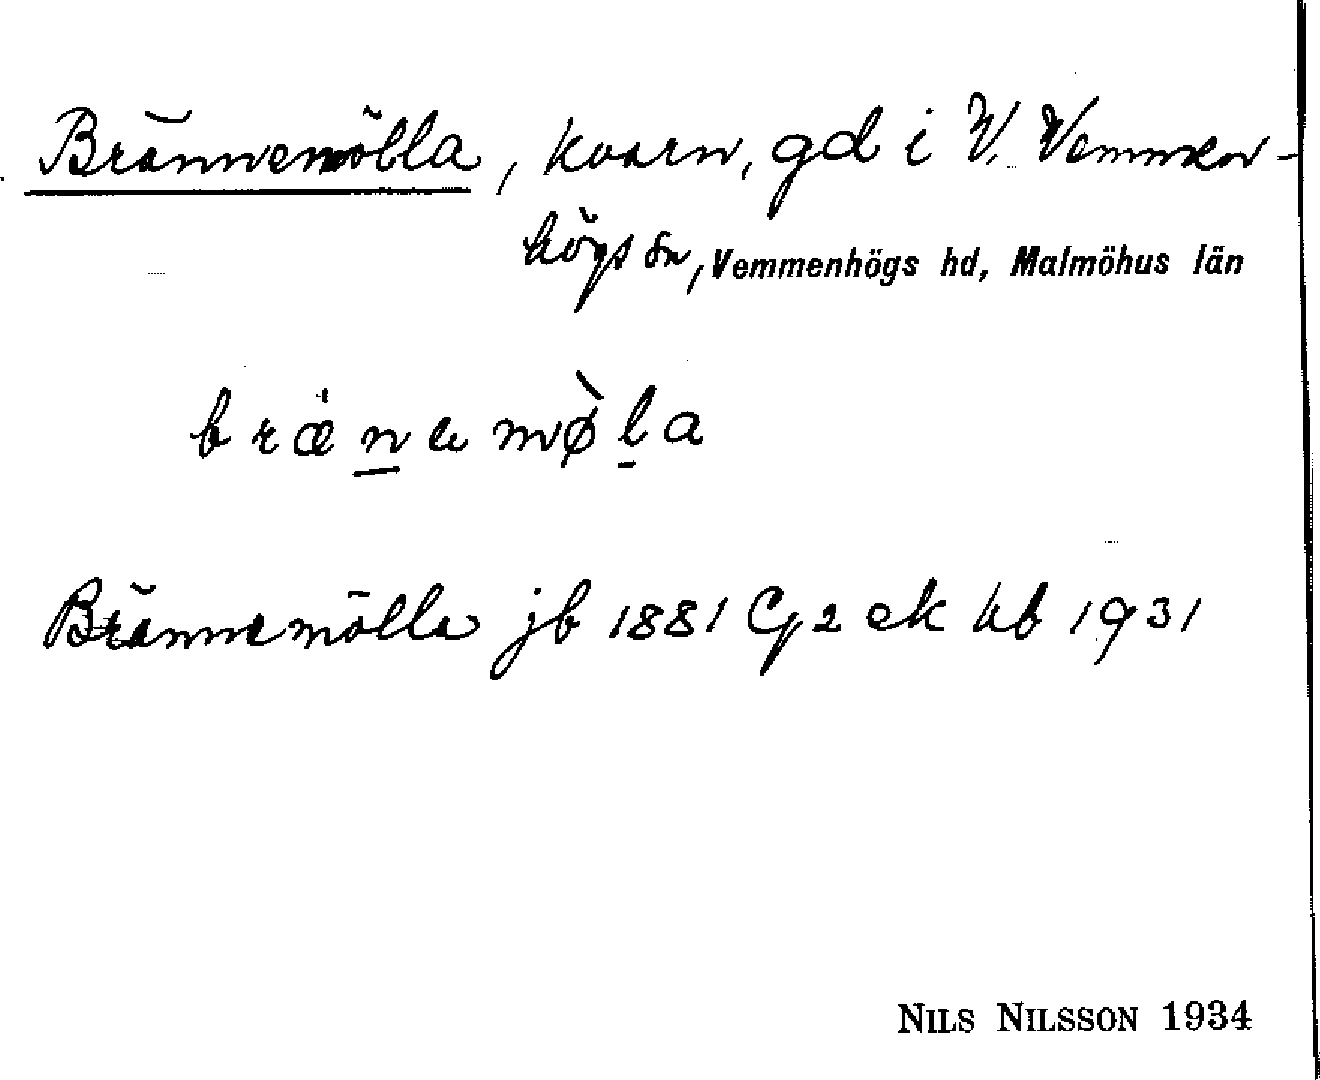 Brännemölla, kvarn, gd i V. Vemmen-
högs sn, Vemmenhögs hd, Malmöhus län
bræ̀nemø̀la
Brännemölla jb 1881 C 2 ek hb 1931
NILS NILSSON 1934